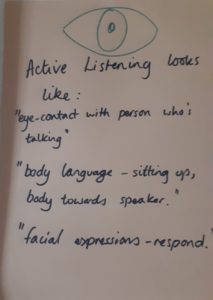 Active Listening looks
like:
"eye-contact with person who's
talking"
"body language - sitting up,
body towards speaker."
"facial expressions - respond."